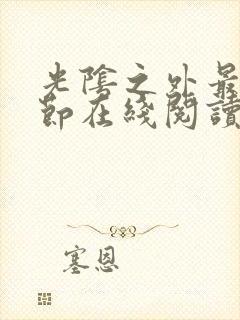 光陰之外最
節在綫閱讀
塞恩